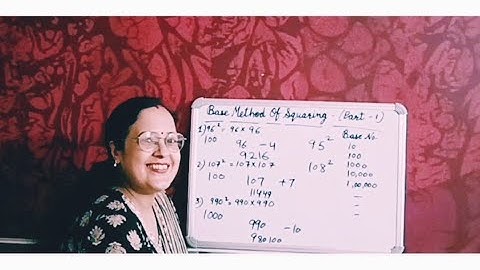 Base Method Of Squaring - (Part - 1)
1) 96² = 96 × 96
100
96 - 4
9216
95²
2) 107² = 107 × 107
100
107 + 7
11449
108²
3) 990² = 990 × 990
1000
990 - 10
980100
Base No.
10
100
1000
10,000
1,00,000